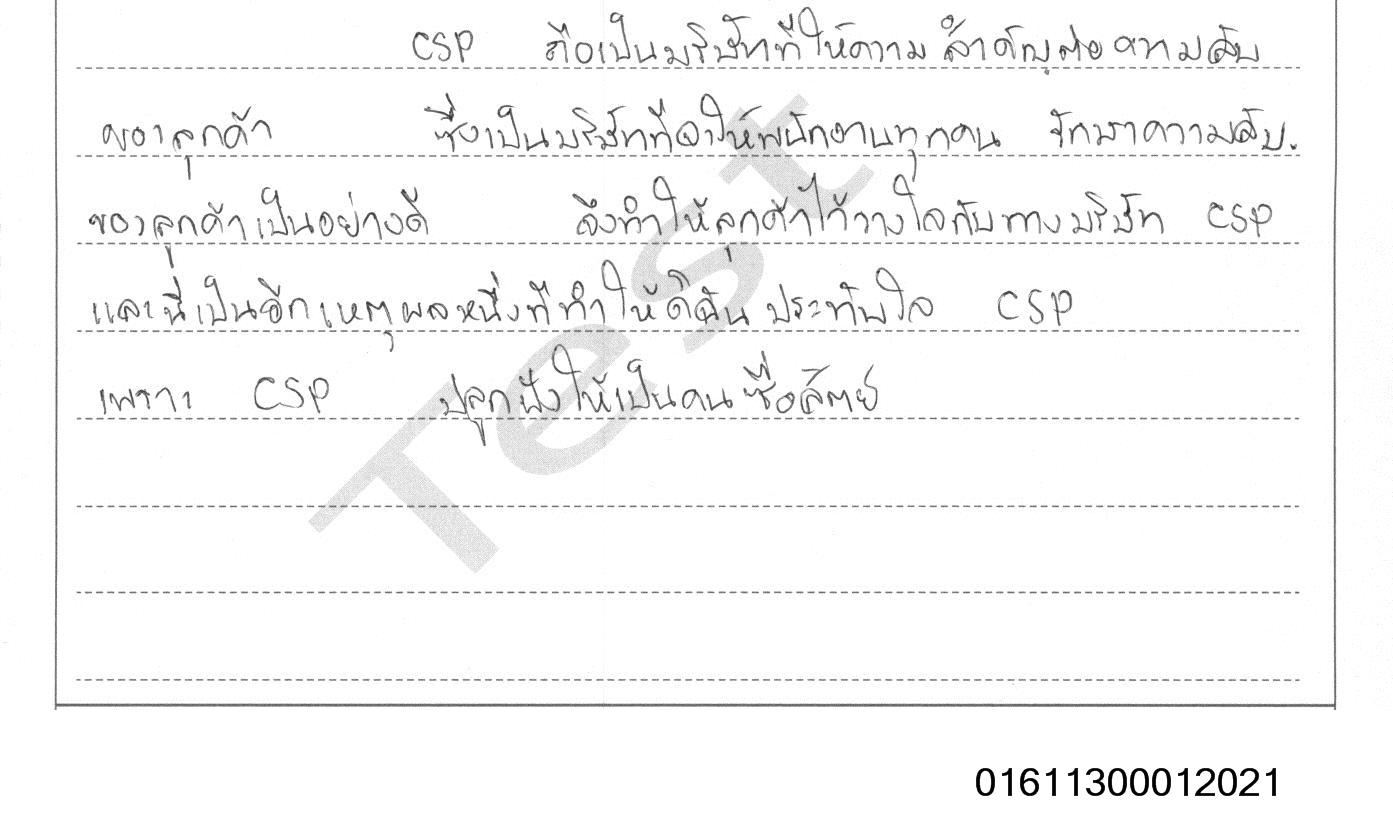 CSP ถือเป็นบริษัทที่ให้ความสำคัญต่อความลับ
ของลูกค้า ซึ่งเป็นบริษัทที่จะให้พนักงานทุกคน รักษาความลับ.
ของลูกค้าเป็นอย่างดี จึงทำให้ลูกค้าไว้วางใจกับทางบริษัท CSP
และนี่เป็นอีกเหตุผลหนึ่งที่ทำให้ดิฉันประทับใจ CSP
เพราะ CSP ปลูกฝังให้เป็นคนซื่อสัตย์
Test
01611300012021